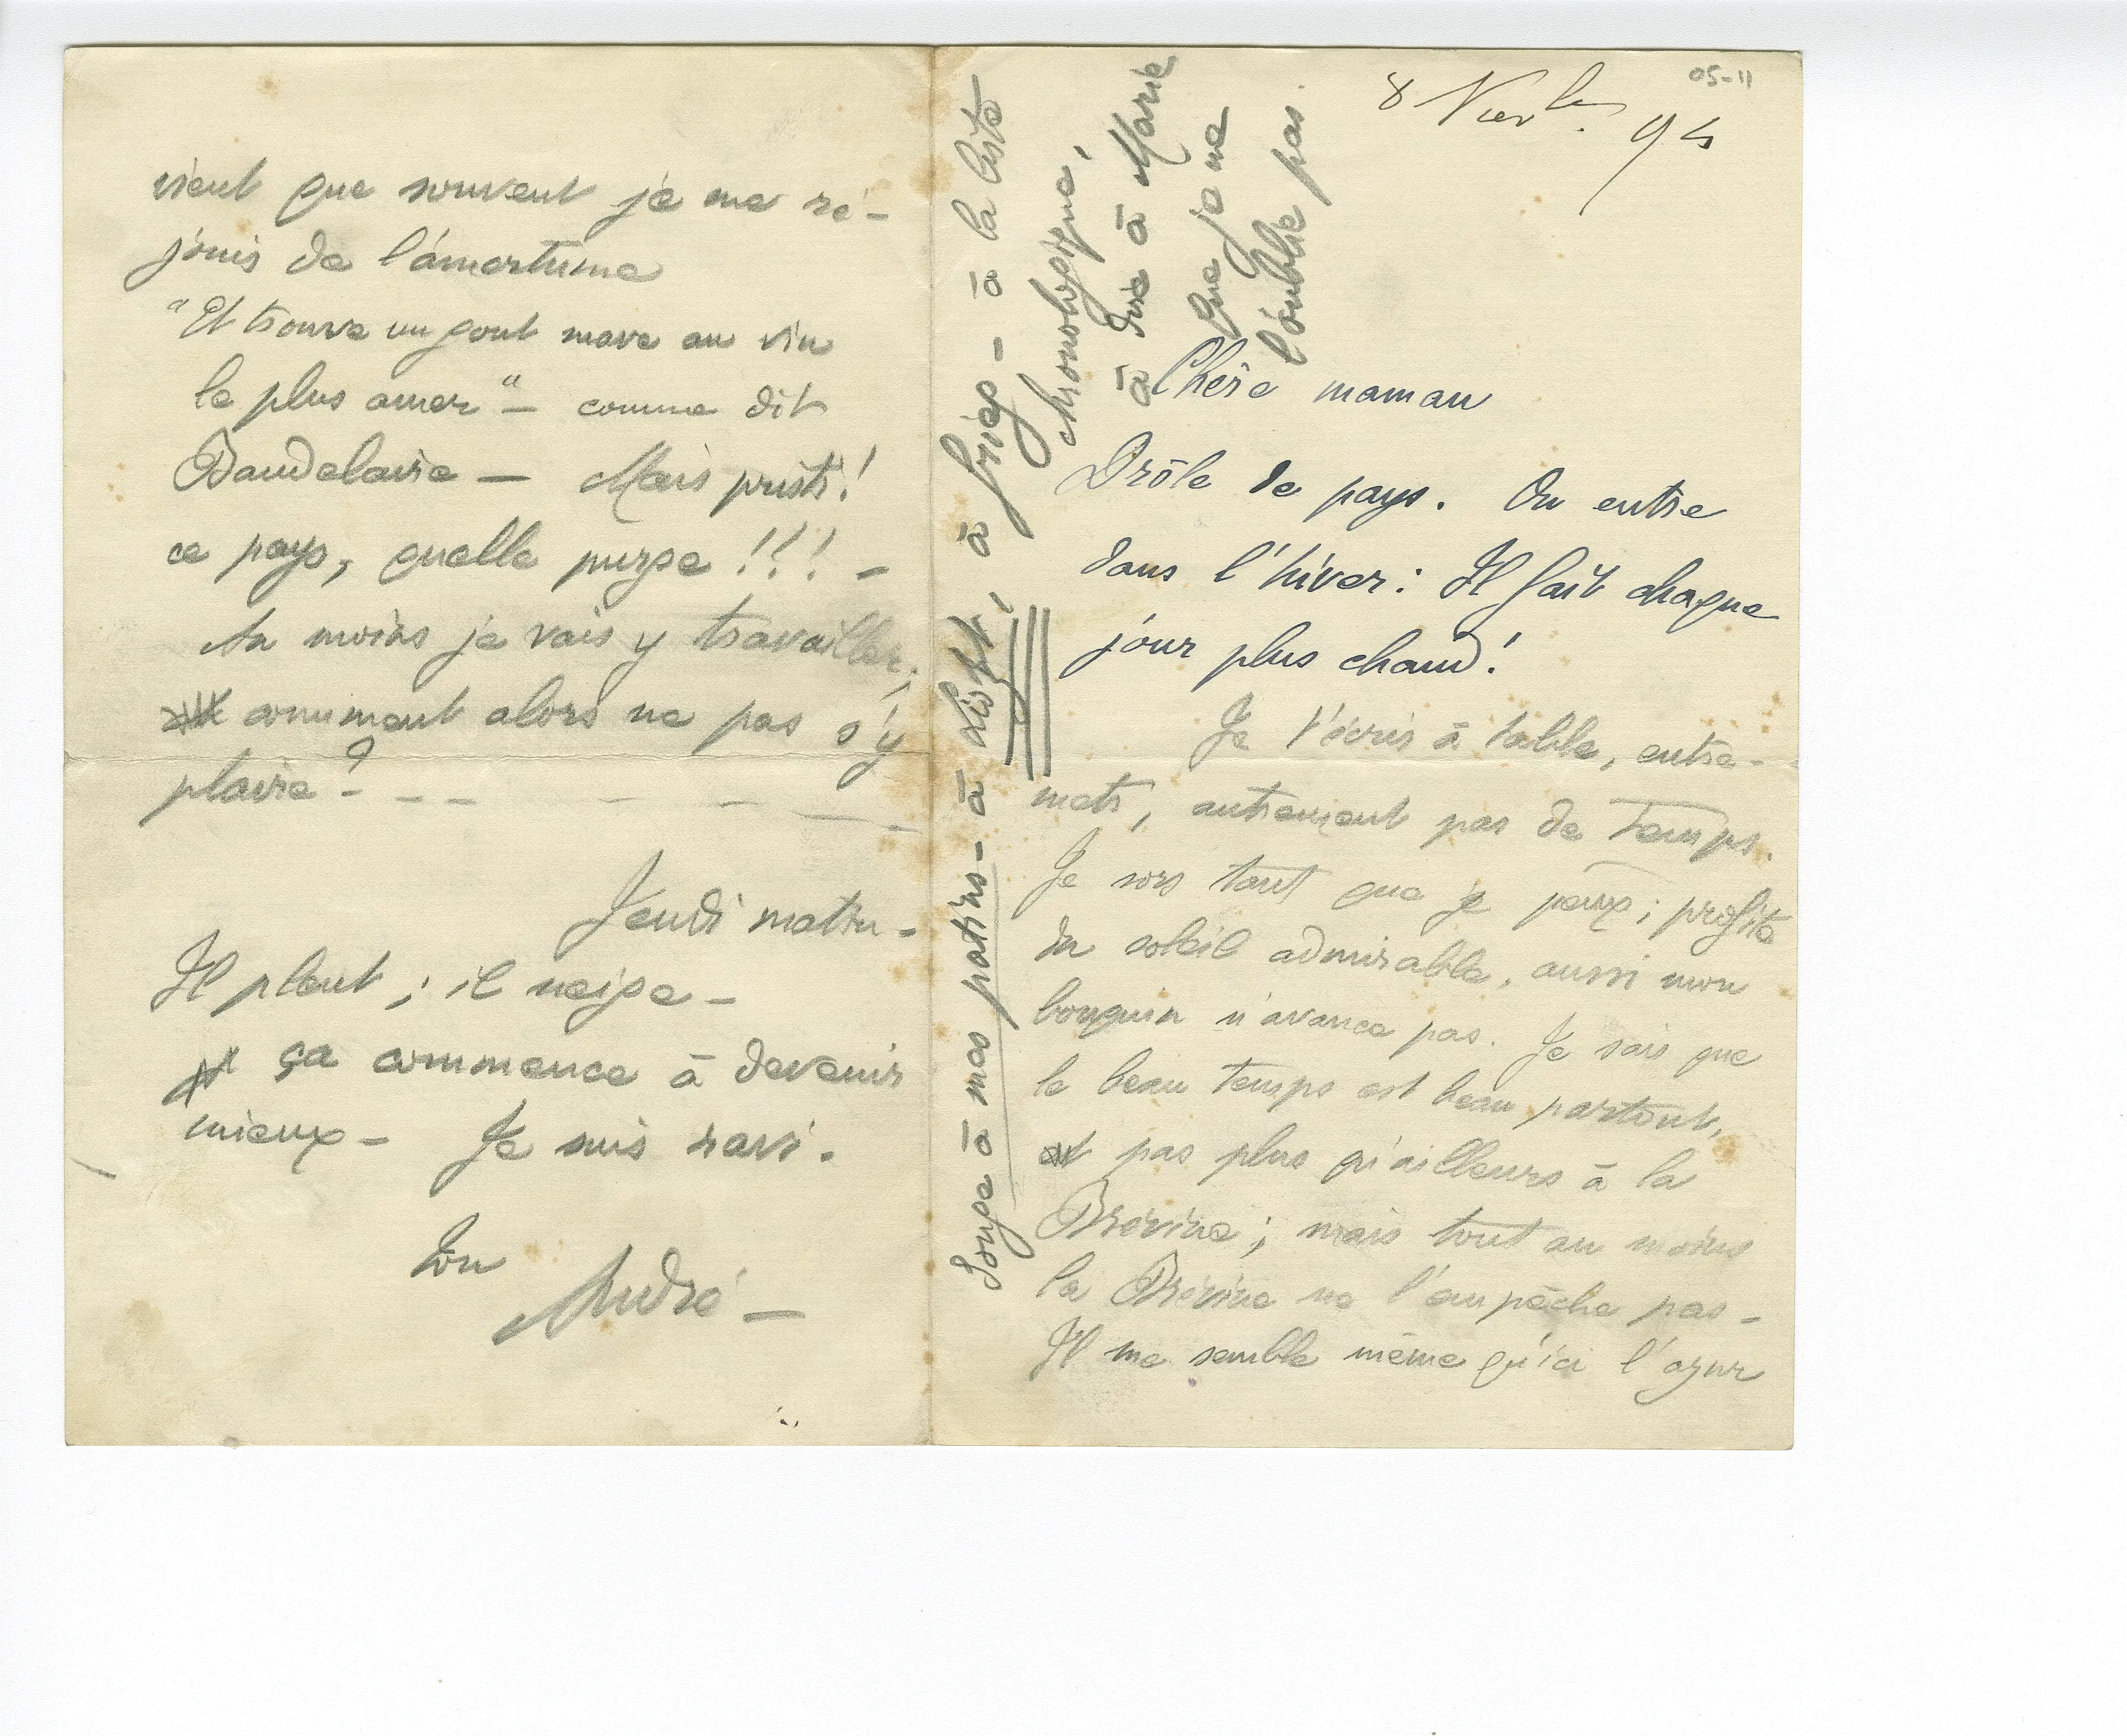 05-11
8 Novbre. 94
Chère maman
Drôle de pays. On entre
dans l'hiver : Il fait chaque
jour plus chaud !
Je t'écris à table, entre-
mets, autrement pas de temps.
Je sors tant que je peux ; profite
du soleil admirable, aussi mon
bouquin n'avance pas. Je sais que
le beau temps est beau partout,
et pas plus qu'ailleurs à la
Brévine ; mais tout au moins
la Brévine ne l'empêche pas -
Il me semble même qu'ici l'azur
vient que souvent je me ré-
jouis de l'amertume
"Et trouve un gout suave au vin
le plus amer" - comme dit
Baudelaire — Mais pristi !
ce pays, quelle purge !!! -
Au moins je vais y travailler,
comment alors ne pas s'y
plaire ? - - - - -
Jeudi matin -
Il pleut ; il neige -
ça commence à devenir
mieux - Je suis ravi.
Ton
André —
Songe à mes patins - à Liszt, à Grieg - à la liste
chronologique,
à dire à Marie
que je ne
l'oublie pas.